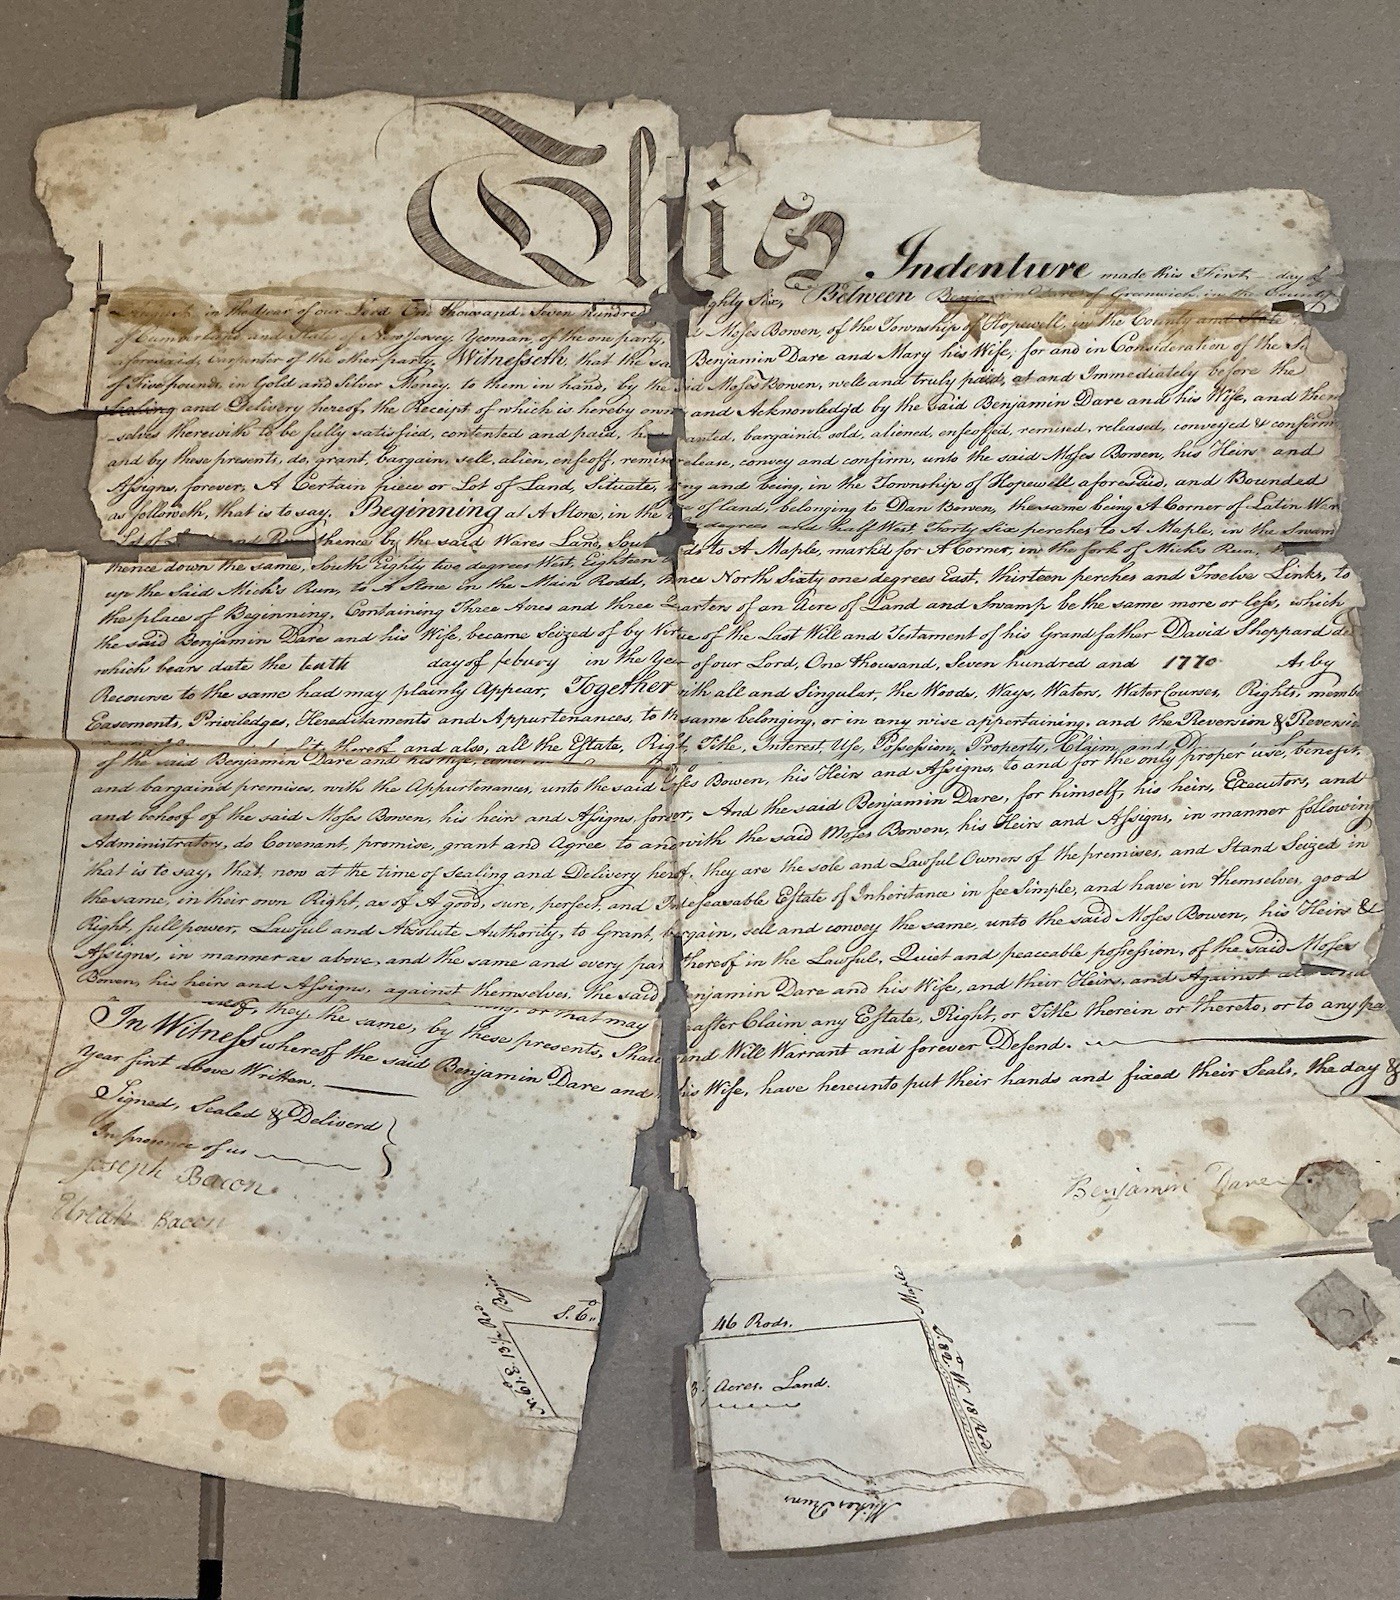 This Indenture made this First day of
August, in the Year of our Lord One thousand Seven hundred ighty Six, Between Benjamin Dare of Greenwich in the County
of Cumberland and State of New Jersey, Yeoman, of the one party, Moses Bowen, of the Township of Hopewell, in the County and State
aforesaid, Carpenter of the other party, Witnesseth, that the said Benjamin Dare and Mary his Wife, for and in Consideration of the
of Five pounds, in Gold and Silver Money, to them in hand, by the said Moses Bowen, well and truly paid, at and Immediately before the
Sealing and Delivery hereof, the Receipt of which is hereby own and Acknowledg'd by the said Benjamin Dare and his Wife, and them
-selves therewith to be fully satisfied, contented and paid, ha anted, bargaind, sold, aliened, enfeoffed, remised, released, conveyed & confirm
and by these presents, do, grant, bargain, sell, alien, enfeoff, remise release, convey and confirm, unto the said Moses Bowen, his Heirs and
Assigns, forever, A Certain piece or Lot of Land, Situate, ing and being, in the Township of Hopewell aforesaid, and Bounded
as followeth, that is to say, Beginning at A Stone, in the of land, belonging to Dan Bowen, the same being A Corner of Latin War
thence by the said Wares Land, Sout degrees and half West Forty Six perches to A Maple, in the Swam
thence down the same, South Eighty two degrees West, Eighteen ds to A Maple, mark'd for A Corner, in the fork of Mick's Run,
up the Said Mich's Run, to A Stone in the Main Rodd, thence North Sixty one degrees East, thirteen perches and Twelve Links, to
the place of Beginning, Containing Three Acres and three Quarters of an Acre of Land and Swamp be the same more or less, which
the said Benjamin Dare and his Wife, became Seized of by Vertue of the Last Will and Testament of his Grandfather David Sheppard de
which bears date the tenth day of febury in the Year of our Lord, One thousand, Seven hundred and 1770 As by
Recourse to the same had may plainly Appear, Together with all and Singular, the Woods, Ways, Waters, Water Courses, Rights, membe
Easements, Priviledges, Hereditaments and Appurtenances, to the same belonging, or in any wise appertaining, and the Reversion & Reversio
thereof and also, all the Estate, Right, Title, Interest, Use, Possession, Property, Claim and
of the said Benjamin Dare and his Wife, the only proper use, benefit,
and bargain'd premises, with the Appurtenances, unto the said Moses Bowen, his Heirs and Assigns, to and for
and behoof of the said Moses Bowen, his heirs and Assigns, forever, And the said Benjamin Dare, for himself, his heirs, Executors, and
Administrators, do Covenant, promise, grant and Agree to and with the said Moses Bowen, his Heirs and Assigns, in manner following
that is to say, that, now at the time of Sealing and Delivery hereof, they are the sole and Lawful Owners of the premises, and Stand Seized in
the same, in their own Right, as of A good, sure, perfect, and Indefeasable Estate of Inheritance in fee Simple, and have in themselves, good
Right, full power, Lawful and Absolute Authority, to Grant, bargain, sell and convey the same, unto the said Moses Bowen, his Heirs &
Assigns, in manner as above, and the same and every par thereof in the Lawful, Quiet and peaceable possession, of the said Moses
Bowen, his heirs and Assigns, against themselves, the said Benjamin Dare and his Wife, and their Heirs, and Against
or that may eafter Claim any Estate, Right, or Title therein or thereto, or to any
they, the same, by these presents, Shall and Will Warrant and forever Defend.
In Witness whereof the said Benjamin Dare and his Wife, have hereunto put their hands and fixed their Seals, the day &
Year first above Written.
Signed, Sealed & Deliverd
In presence of us
Joseph Bacon
Uriah Bacon
Benjamin Dare
S. 6
46 Rods.
Maple
N. 61. E. 13½ Ro.
S. 82. W. 18 Rods
3 Acres. Land.
Mickes Runs